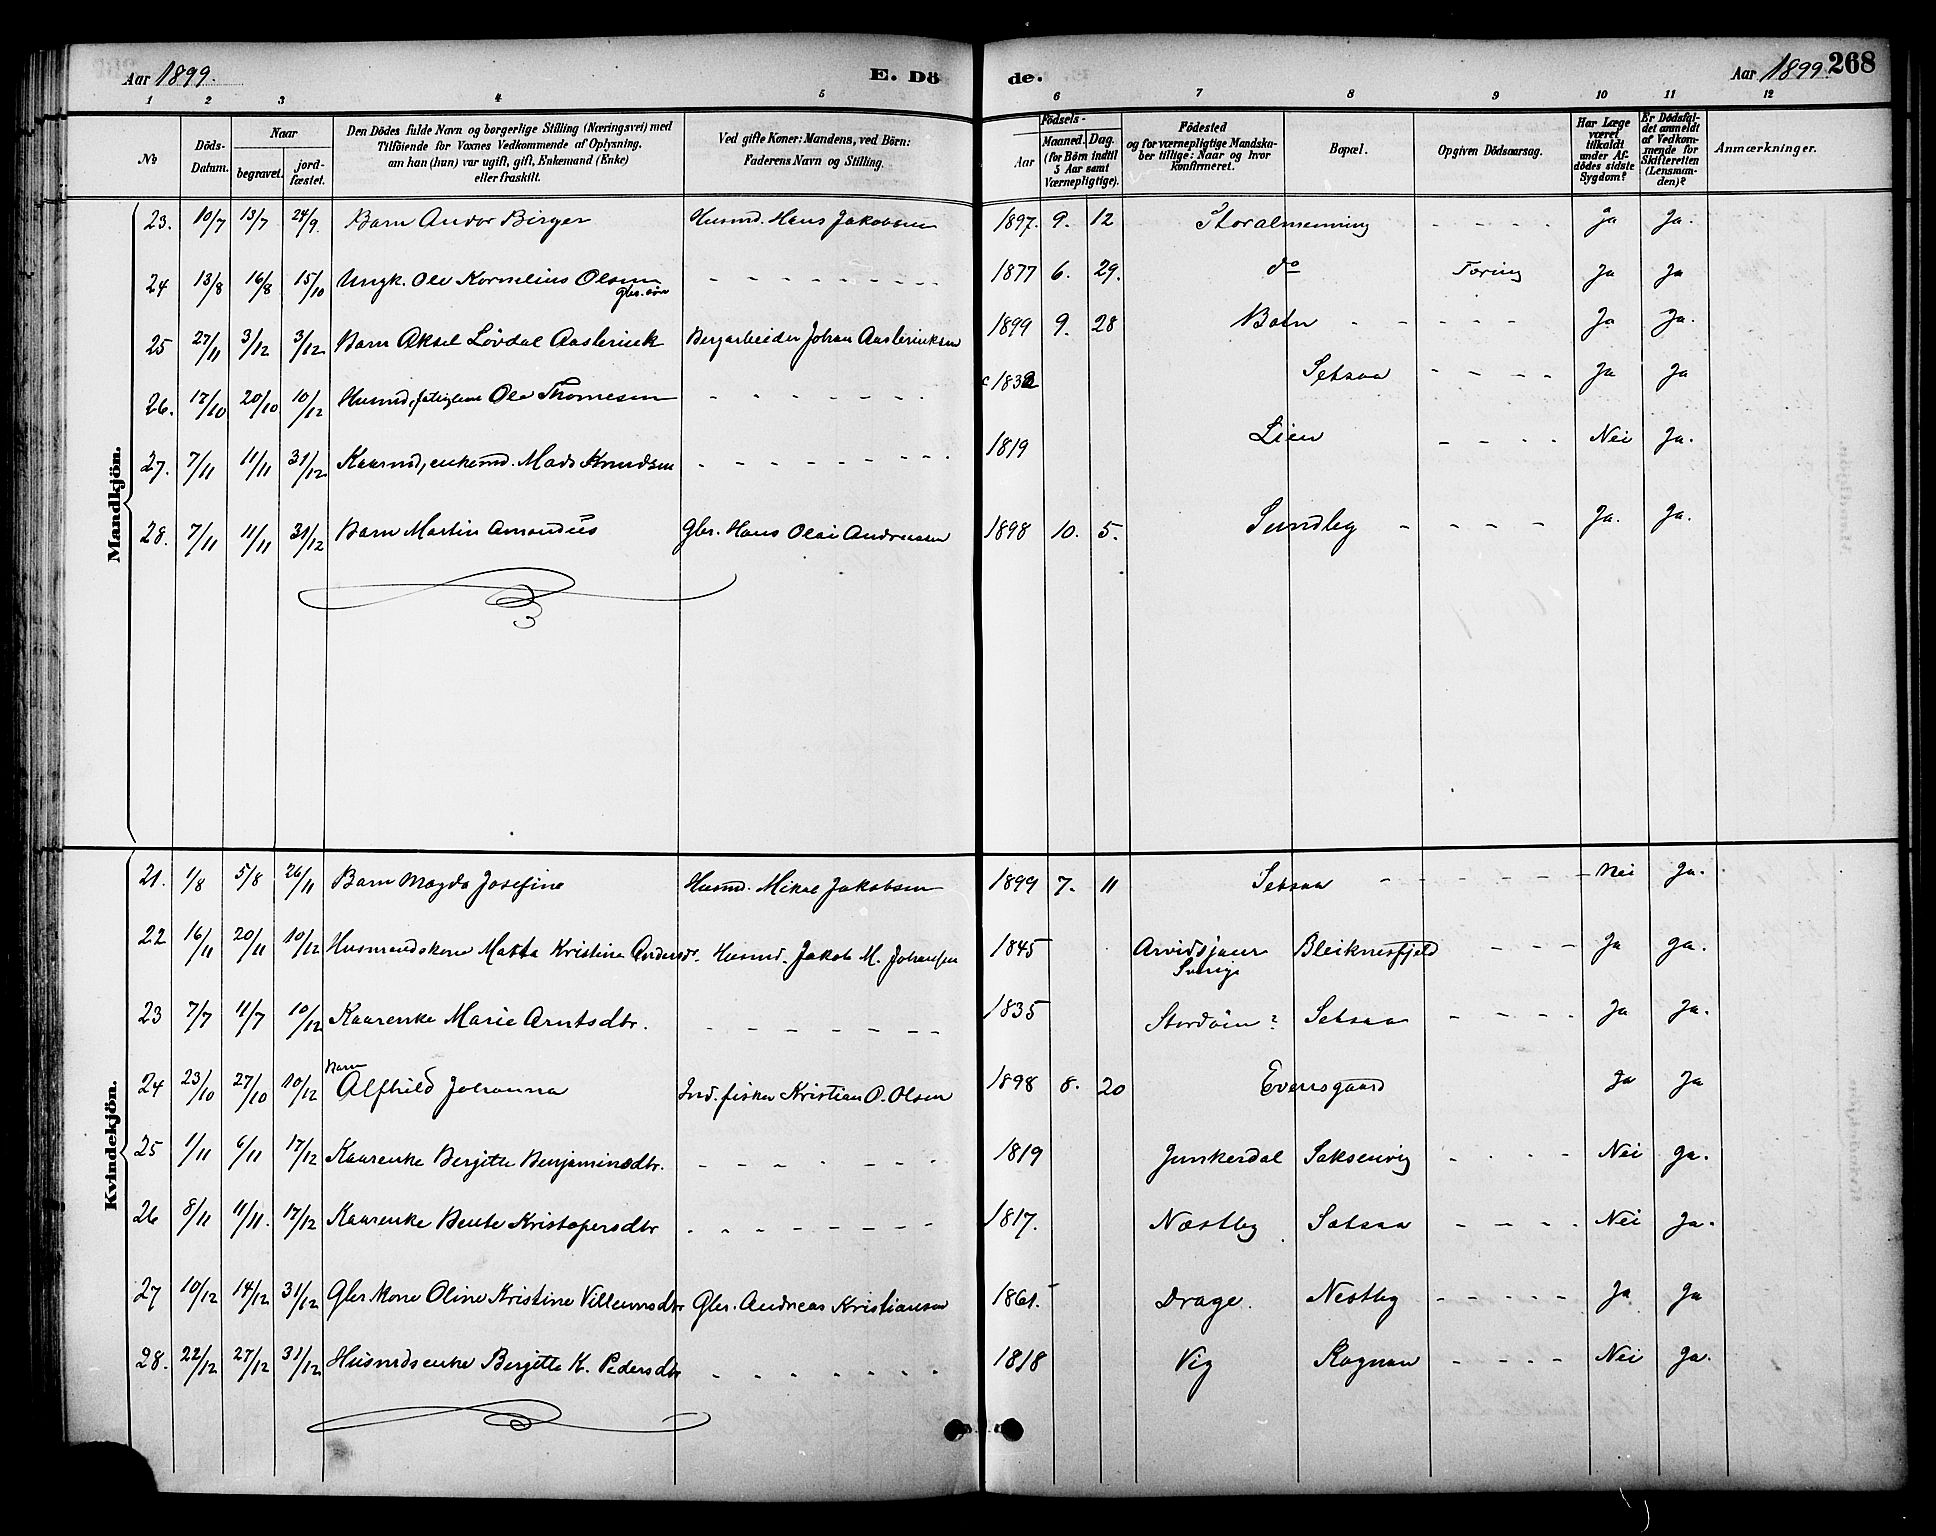 Aar 1899.
E. Dö
de.
Aar 1899.
268
1 2 3 4 5 6 7 8 9 10 11 12
No
Döds-Datum.
Naar
begravet.
jord-fæstet.
Den Dödes fulde Navn og borgerlige Stilling (Næringsvei) med
Tilföiende for Voxnes Vedkommende af Oplysning.
om han (hun) var ugift, gift, Enkemand (Enke)
eller fraskilt.
Ved gifte Koner: Mandens, ved Börn:
Faderens Navn og Stilling.
Födsels-
Aar
Maaned. Dag.
(for Börn indtil
5 Aar samt
Værnepligtige).
Födested
og for værnepligtige Mandska-
ber tillige: Naar og hvor
Konfirmeret.
Bopæl.
Opgiven Dödsaarsag.
Har Læge
været
tilkaldt
under Af-
dödes sidste
Sygdom?
Er Dödsfal-
det anmeldt
af Vedkom-
mende for
Skifteretten
(Lensman-
den)?
Anmærkninger.
Mandkjön.
23. 10/7 13/7 24/9. Barn Andor Birger Husmd. Hans Jakobsen 1897. 9. 12 Storalmenning - - - - Ja Ja.
24 13/8 16/8 15/10 Ungk. Ole Kornelius Olsen - - - - - - - 1877 6. 29. do Tæring Ja Ja
Gbr. søn
25 27/11 3/12 3/12 Barn Aksel Løvdal Aslerirek Bergarbeider Johan Aasleriksen 1899 9. 28 Botn - - - - - Ja Ja.
26. 17/10 20/10 10/12 Husmd, Ole Thomesen - - - - - - - 1832 Setsaa - - - - Ja Ja
27. 7/11 11/11 31/12 Kaarmd, enkemd. Mads Knudsen - - - - - - - 1819 Lien - - - - Nei Ja.
28. 7/11 11/11 31/12 Barn Martin Amandus Gbr. Hans Olai Andreasen 1898 10. 5. Sundby - - - - Ja. Ja.
Kvindekjön.
21. 1/8 5/8 26/11 Barn Magda Josefine Husmd. Mikal Jakobsen 1899 7. 11 Setsaa - - - - - - Nei Ja.
22 16/11 20/11 10/12 Husmandskone Matta Kristina Andersdr. Husmd. Jakob M. Johansen 1845 Arvidsjaur Bleiknesfjeld - - - Ja Ja.
Sverige
23 7/7 11/7 10/12 Kaarenke Marie Arntsdtr. - - - - - - - 1835 Stordøin? Setsaa - - - - Ja Ja.
Barn
24 23/10 27/10 10/12 Alfhild Johanna Ind. fisker Kristian O. Olsen 1898 8. 20 Evensgaard Ja Ja
25 1/11 6/11 17/12 Kaarenke Berjitte Benjaminsdtr. - - - - - - - 1819 Junkerdal Saksenvig - - - - Nei Ja.
26 8/11 11/11. 17/12 Kaarenke Bente Kristofersdtr - - - - - - - 1817. Næstby Setsaa - - - - Nei Ja.
27 10/12 14/12 31/12 Gbr kone Oline Kristine Villumsdtr Gbr. Andreas Kristiansen 1861. Drage. Nestby - - - - - Ja Ja
28. 22/12 27/12 31/12 Husmdsenke Berjitta K. Pedersdtr - - - - - - 1818 Vig Rognan - - - - Nei Ja.